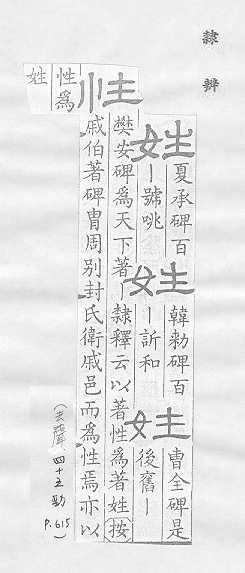 隸辨
姓
夏承碑百
丨號咷
姓
韓勑碑百
丨訢和
姓
曹全碑是
後舊丨
性
樊安碑爲天下著丨隸釋云以著性爲著姓〔按〕
戚伯著碑冑周別封氏衛戚邑而爲性焉亦以
性爲
姓
(去聲 四十五勁 P.615)